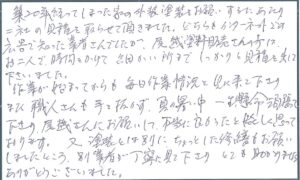 築20年経ってしまった家の外装塗装をお願いするにあたり
二社の見積を取らせて頂きました。どちらもインターネットで
広告で知った業者さんでしたが、屋根塗料販売さんの方は、
お二人で、時間をかけて細かい所までしっかりと見積を見て
下さいました。
作業が始まってからも毎日作業情況を見に来て下さり
また職人さんも手を抜かず、真夏の中一生懸命に頑張って
下さり、屋根さんにお願いして、本当に良かったと嬉しく思って
おります。又、塗装とは別にちょっとした修繕もお願い
しましたところ、別の業者が丁寧に見て下さりとても助かりました
ありがとうございました。